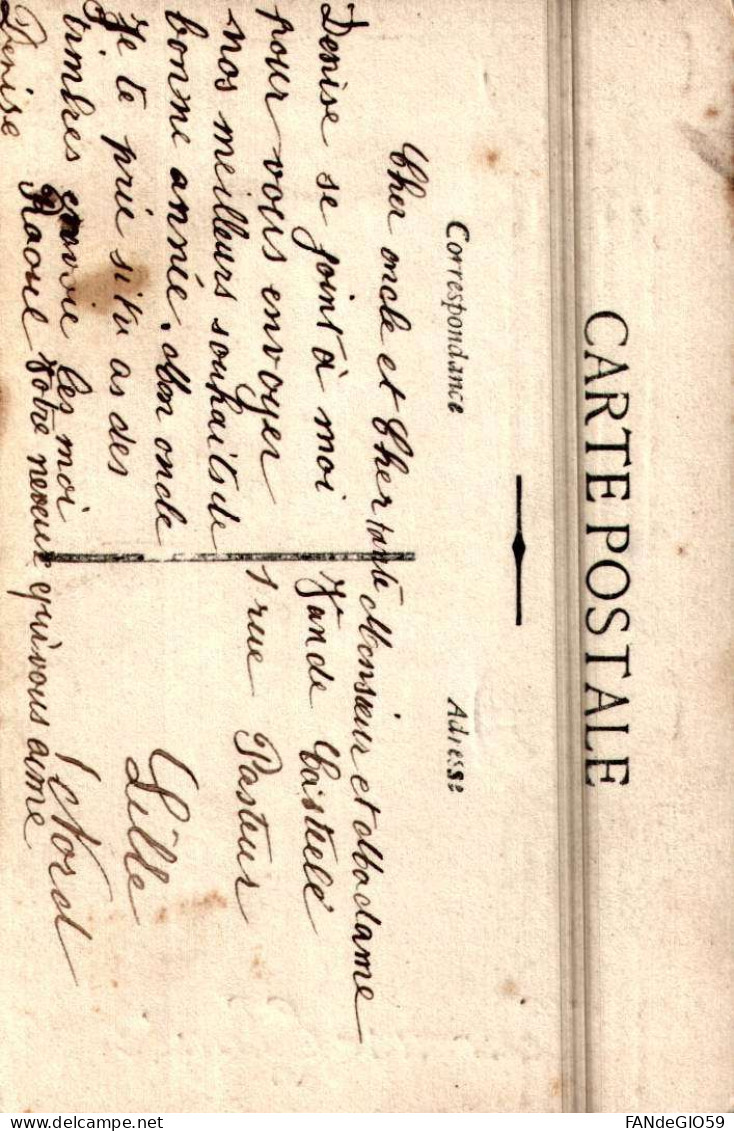 CARTE POSTALE
Correspondance
Cher oncle et Cher tante
Denise se joint à moi
pour vous envoyer
nos meilleurs souhaits de
bonne année. Mon oncle
Je te prie si tu as des
timbres envoie les moi
Raoul votre neveux qui vous aime
Denise
Adresse
Monsieur et Madame
Van de
1 rue Pasteur
Lille
Nord
FANdeGIO59